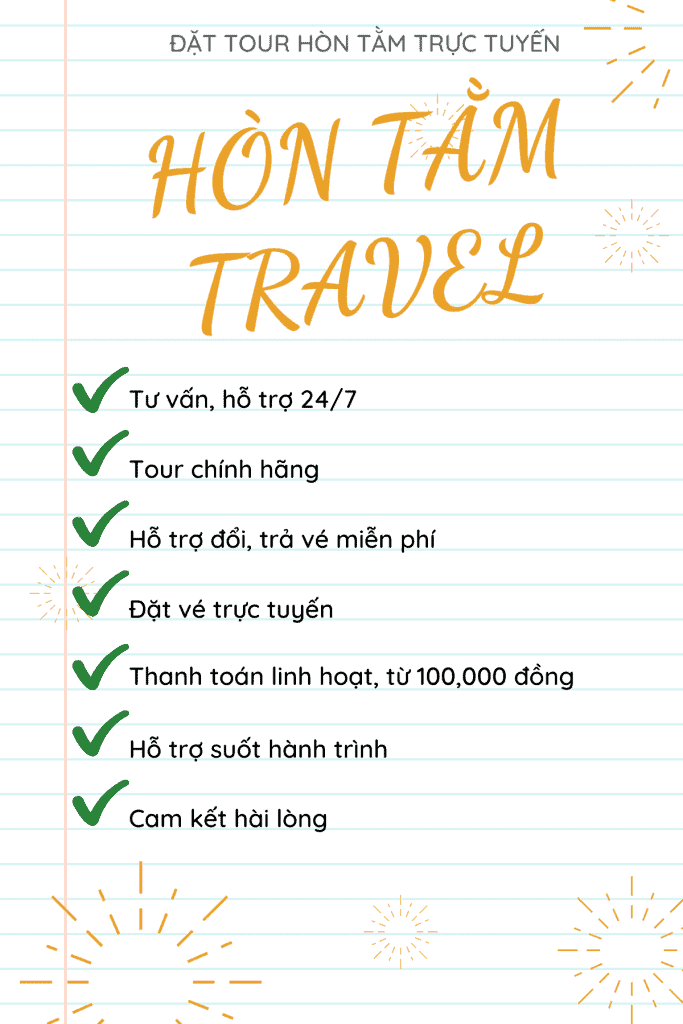 ĐẶT TOUR HÒN TẰM TRỰC TUYẾN
HÒN TẰM
TRAVEL
Tư vấn, hỗ trợ 24/7
Tour chính hãng
Hỗ trợ đổi, trả vé miễn phí
Đặt vé trực tuyến
Thanh toán linh hoạt, từ 100,000 đồng
Hỗ trợ suốt hành trình
Cam kết hài lòng